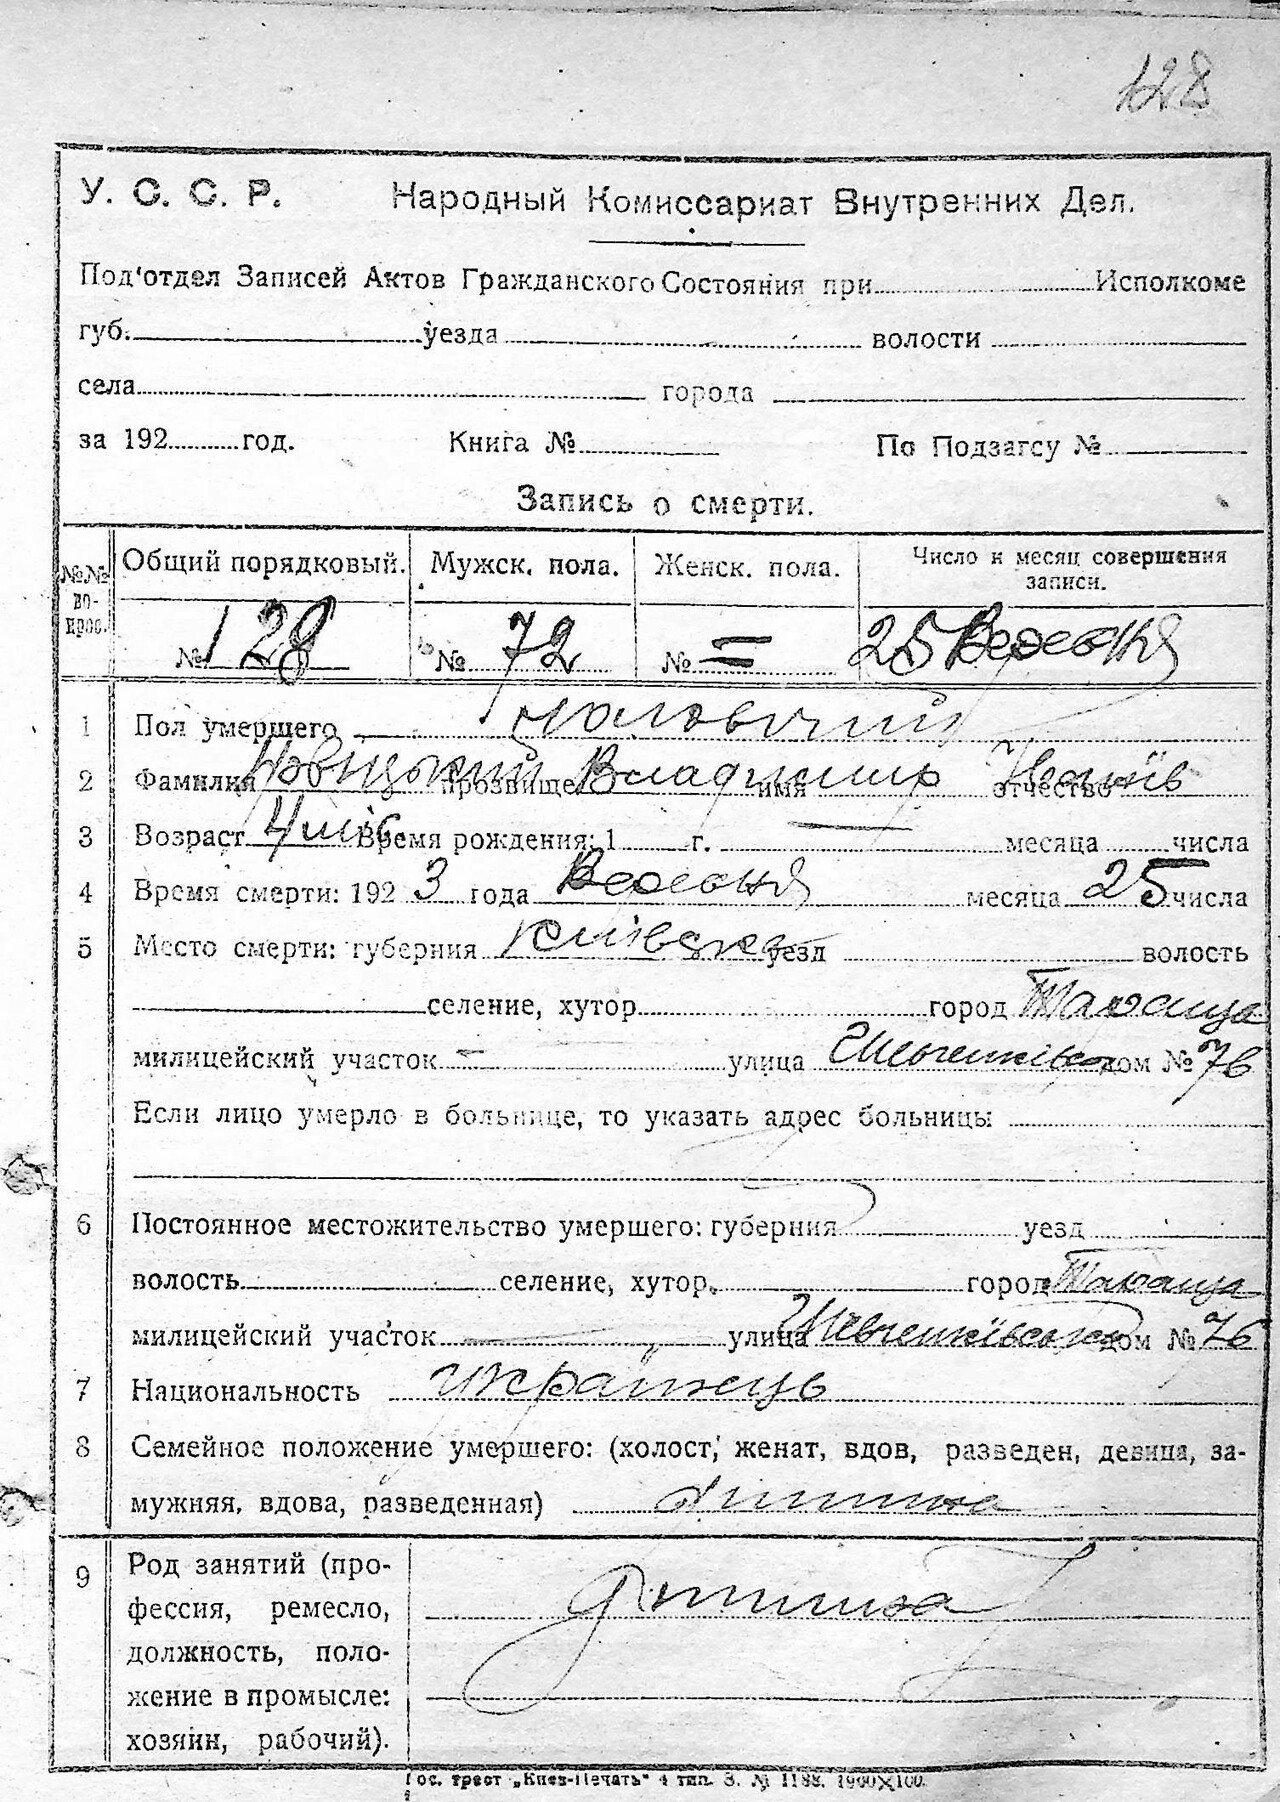 128
У. С. С. Р. Народный Комиссариат Внутренних Дел.
Под'отдел Записей Актов Гражданского Состояния при Исполкоме
губ. уезда волости
села города
за 192 год. Книга № По Подзагсу №
Запись о смерти.
№№ вопрос. Общий порядковый. Мужск. пола. Женск. пола. Число и месяц совершения записи.
№ 128 № 72 № = 25 Вересня
1 Пол умершего чоловічий
2 Фамилия прозвище Владимир имя отчество
3 Возраст 4 Время рождения: 1 г. — месяца числа
4 Время смерти: 192 3 года Вересня месяца 25 числа
5 Место смерти: губерния Київска уезд волость
селение, хутор город Тараща
милицейский участок — улица Шевченківска дом № 76
Если лицо умерло в больнице, то указать адрес больницы
6 Постоянное местожительство умершего: губерния уезд
волость селение, хутор, город Тараща
милицейский участок — улица Шевченківска дом № 76
7 Национальность українець
8 Семейное положение умершего: (холост, женат, вдов, разведен, девица, за-
мужняя, вдова, разведенная) дитина
9 Род занятий (про-
фессия, ремесло, дитина
должность, поло-
жение в промысле:
хозяин, рабочий).
Гос. трест „Киев-Печать" 4 тип. З. № 1188. 1900×100.